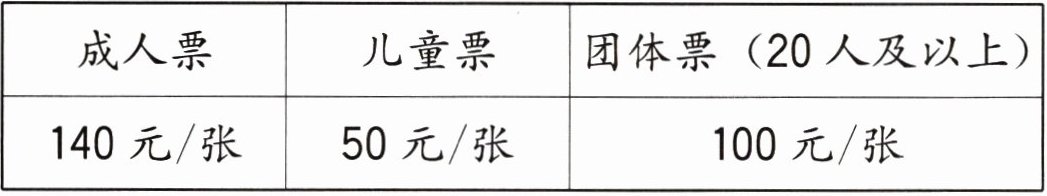 成人票 儿童票 团体票（20人及以上）
140元/张 50元/张 100元/张